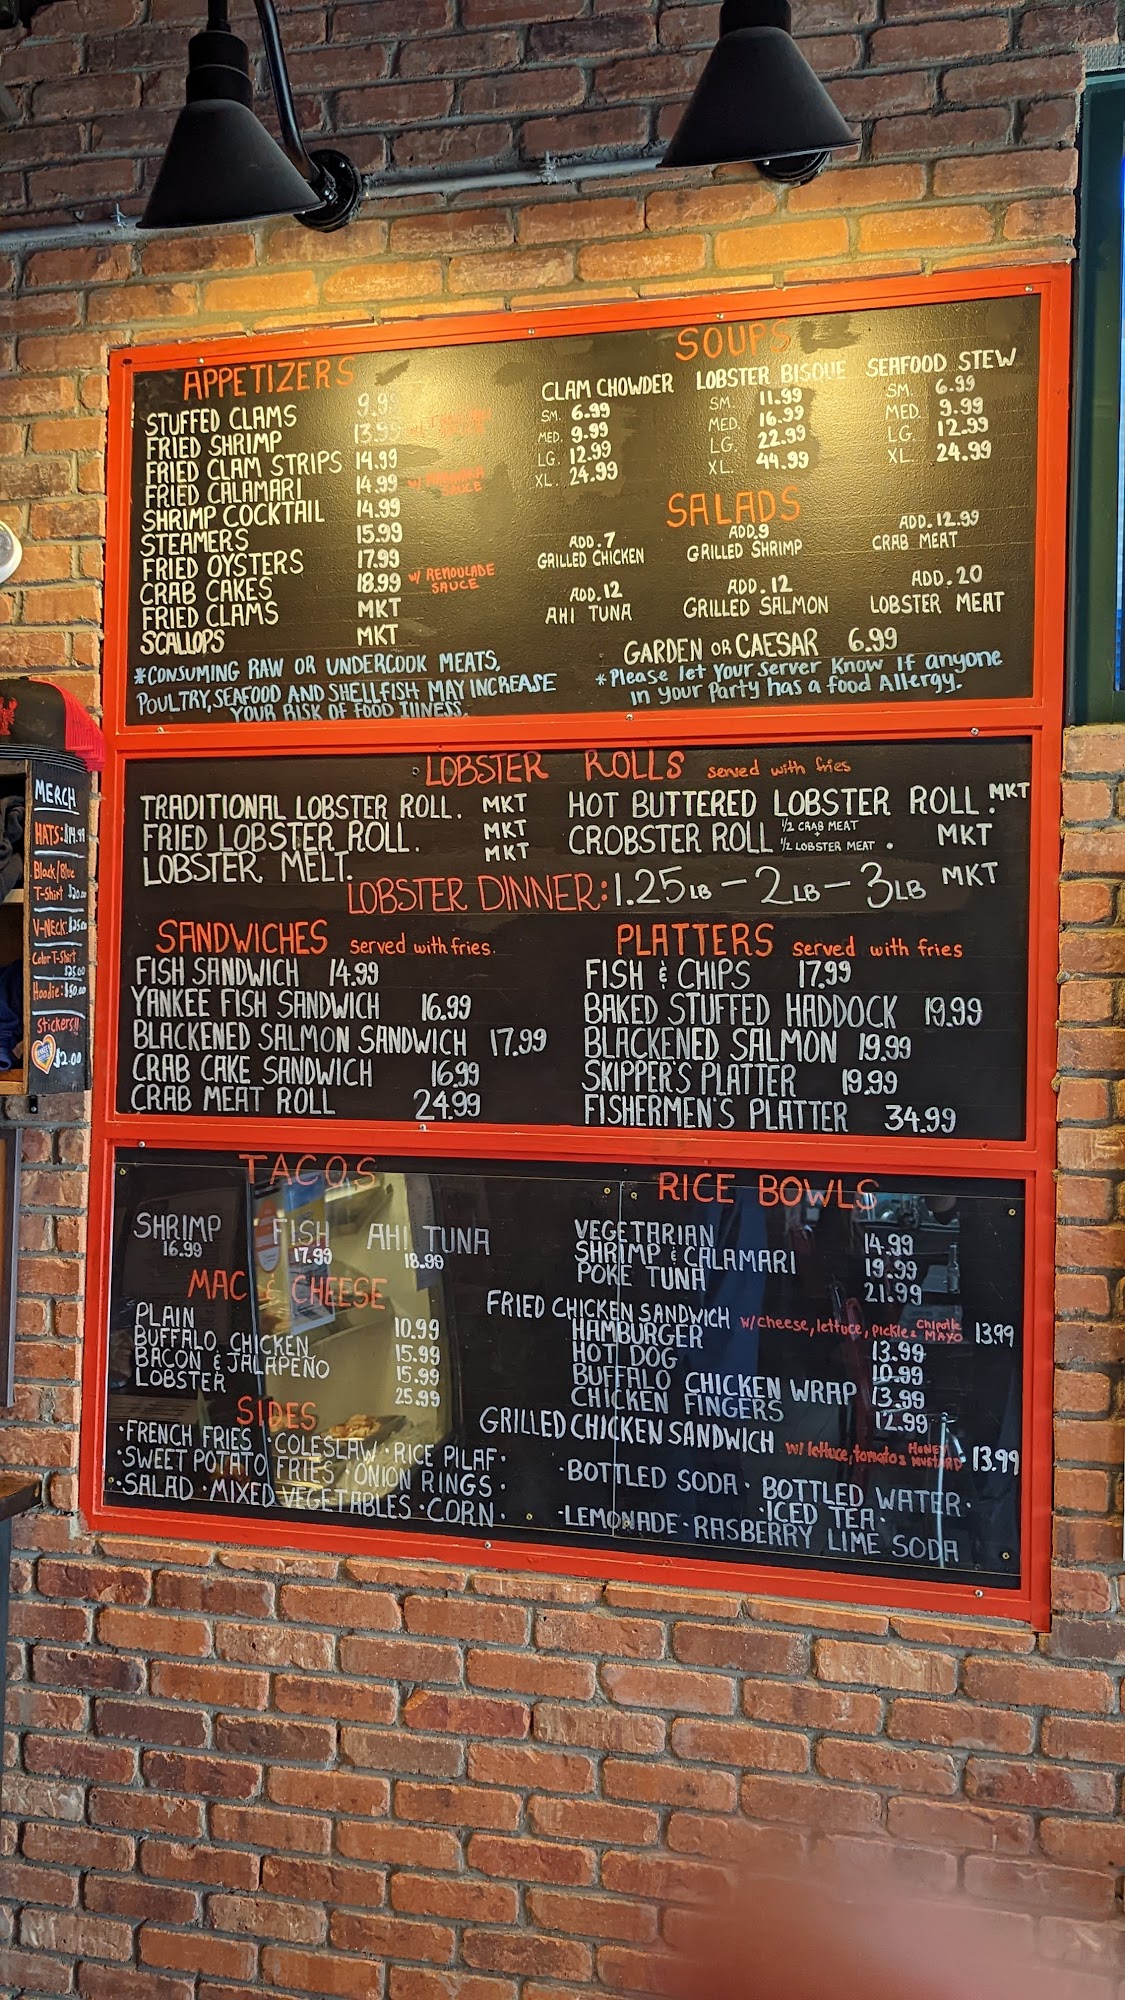 APPETIZERS
STUFFED CLAMS 9.99
FRIED SHRIMP 13.99
FRIED CLAM STRIPS 14.99
FRIED CALAMARI 14.99 w/ MARINARA SAUCE
SHRIMP COCKTAIL 14.99
STEAMERS 15.99
FRIED OYSTERS 17.99
CRAB CAKES 18.99 w/ REMOULADE SAUCE
FRIED CLAMS MKT
SCALLOPS MKT
*CONSUMING RAW OR UNDERCOOK MEATS,
POULTRY, SEAFOOD AND SHELLFISH MAY INCREASE
YOUR RISK OF FOOD ILLNESS.
SOUPS
CLAM CHOWDER
SM. 6.99
MED. 9.99
LG. 12.99
XL. 24.99
LOBSTER BISQUE
SM. 11.99
MED. 16.99
LG. 22.99
XL. 44.99
SEAFOOD STEW
SM. 6.99
MED. 9.99
LG. 12.99
XL. 24.99
SALADS
ADD.7
GRILLED CHICKEN
ADD.9
GRILLED SHRIMP
ADD.12.99
CRAB MEAT
ADD.12
AHI TUNA
ADD.12
GRILLED SALMON
ADD.20
LOBSTER MEAT
GARDEN OR CAESAR 6.99
*Please let Your Server Know If anyone
in your Party has a food Allergy.
LOBSTER ROLLS served with fries
TRADITIONAL LOBSTER ROLL. MKT
FRIED LOBSTER ROLL. MKT
LOBSTER MELT. MKT
HOT BUTTERED LOBSTER ROLL. MKT
CROBSTER ROLL 1/2 CRAB MEAT + 1/2 LOBSTER MEAT . MKT
LOBSTER DINNER: 1.25 LB - 2 LB - 3 LB MKT
SANDWICHES served with fries.
FISH SANDWICH 14.99
YANKEE FISH SANDWICH 16.99
BLACKENED SALMON SANDWICH 17.99
CRAB CAKE SANDWICH 16.99
CRAB MEAT ROLL 24.99
PLATTERS served with fries
FISH & CHIPS 17.99
BAKED STUFFED HADDOCK 19.99
BLACKENED SALMON 19.99
SKIPPER'S PLATTER 19.99
FISHERMEN'S PLATTER 34.99
TACOS
SHRIMP FISH AHI TUNA
16.99 17.99 18.99
MAC & CHEESE
PLAIN 10.99
BUFFALO CHICKEN 15.99
BACON & JALAPEÑO 15.99
LOBSTER 25.99
SIDES
·FRENCH FRIES ·COLESLAW ·RICE PILAF·
·SWEET POTATO FRIES ·ONION RINGS·
·SALAD ·MIXED VEGETABLES ·CORN·
RICE BOWLS
VEGETARIAN 14.99
SHRIMP & CALAMARI 19.99
POKE TUNA 21.99
FRIED CHICKEN SANDWICH w/cheese, lettuce, pickle & Chipotle MAYO 13.99
HAMBURGER 13.99
HOT DOG 10.99
BUFFALO CHICKEN WRAP 13.99
CHICKEN FINGERS 12.99
GRILLED CHICKEN SANDWICH w/ lettuce, tomato & HONEY MUSTARD · 13.99
·BOTTLED SODA · BOTTLED WATER·
·ICED TEA·
·LEMONADE · RASBERRY LIME SODA
MERCH
HATS: $14.99
Black/Blue
T-Shirt $20.00
V-NECK: $25.00
Color T-Shirt
$25.00
Hoodie: $50.00
Stickers!!
$2.00